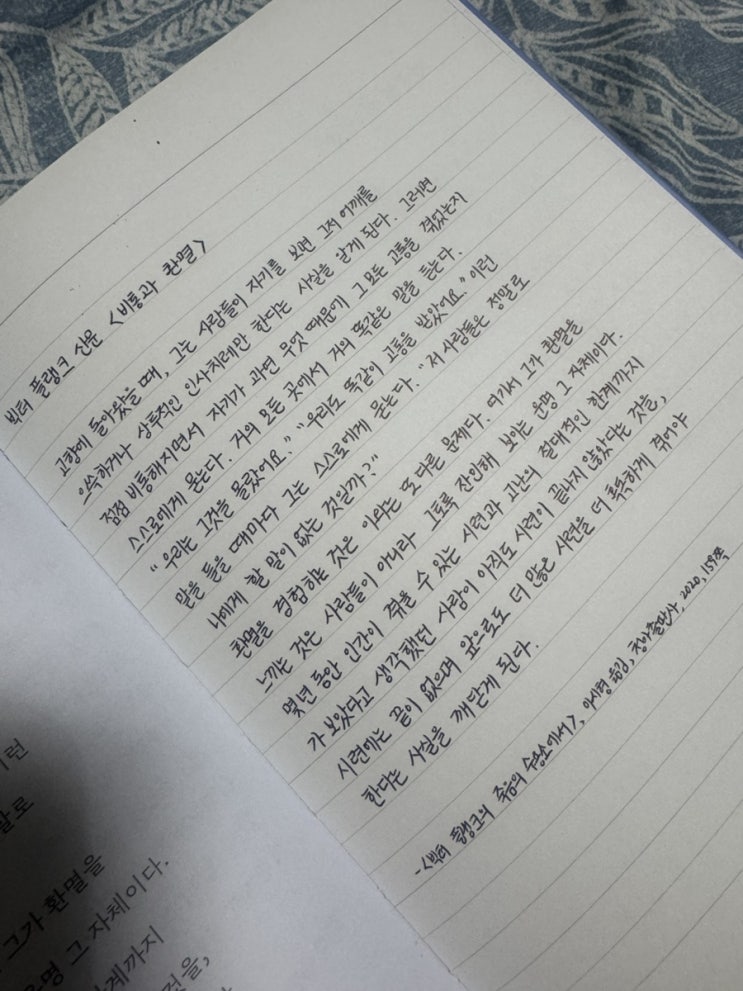 빅터 플랭크 산문 <비통과 환멸>
고향에 돌아왔을 때, 그는 사람들이 자기를 보면 그저 어깨를
으쓱하거나 상투적인 인사치레만 한다는 사실을 알게 된다. 그러면
점점 비통해지면서 자기가 과연 무엇 때문에 그 모든 고통을 겪었는지
스스로에게 묻는다. 거의 모든 곳에서 거의 똑같은 말을 듣는다.
"우리는 그것을 몰랐어요." "우리도 똑같이 고통을 받았어요." 이런
말을 들을 때마다 그는 스스로에게 묻는다. "저 사람들은 정말로
나에게 할 말이 없는 것일까?"
환멸을 경험하는 것은 이와는 또 다른 문제다. 여기서 그가 환멸을
느끼는 것은 사람들이 아니라 그토록 잔인해 보이는 운명 그 자체이다.
몇년 동안 인간이 겪을 수 있는 시련과 고난의 절대적인 한계까지
가 보았다고 생각했던 사람이 아직도 시련이 끝나지 않았다는 것을,
시련에는 끝이 없으며 앞으로도 더 많은 시련을 더 혹독하게 겪어야
한다는 사실을 깨닫게 된다.
-<빅터 플랭크의 죽음의 수용소에서>, 이시형 옮김, 청아출판사, 2020, 159쪽
이런
말로
그가 환멸을
운명 그 자체이다.
한계까지
것을,